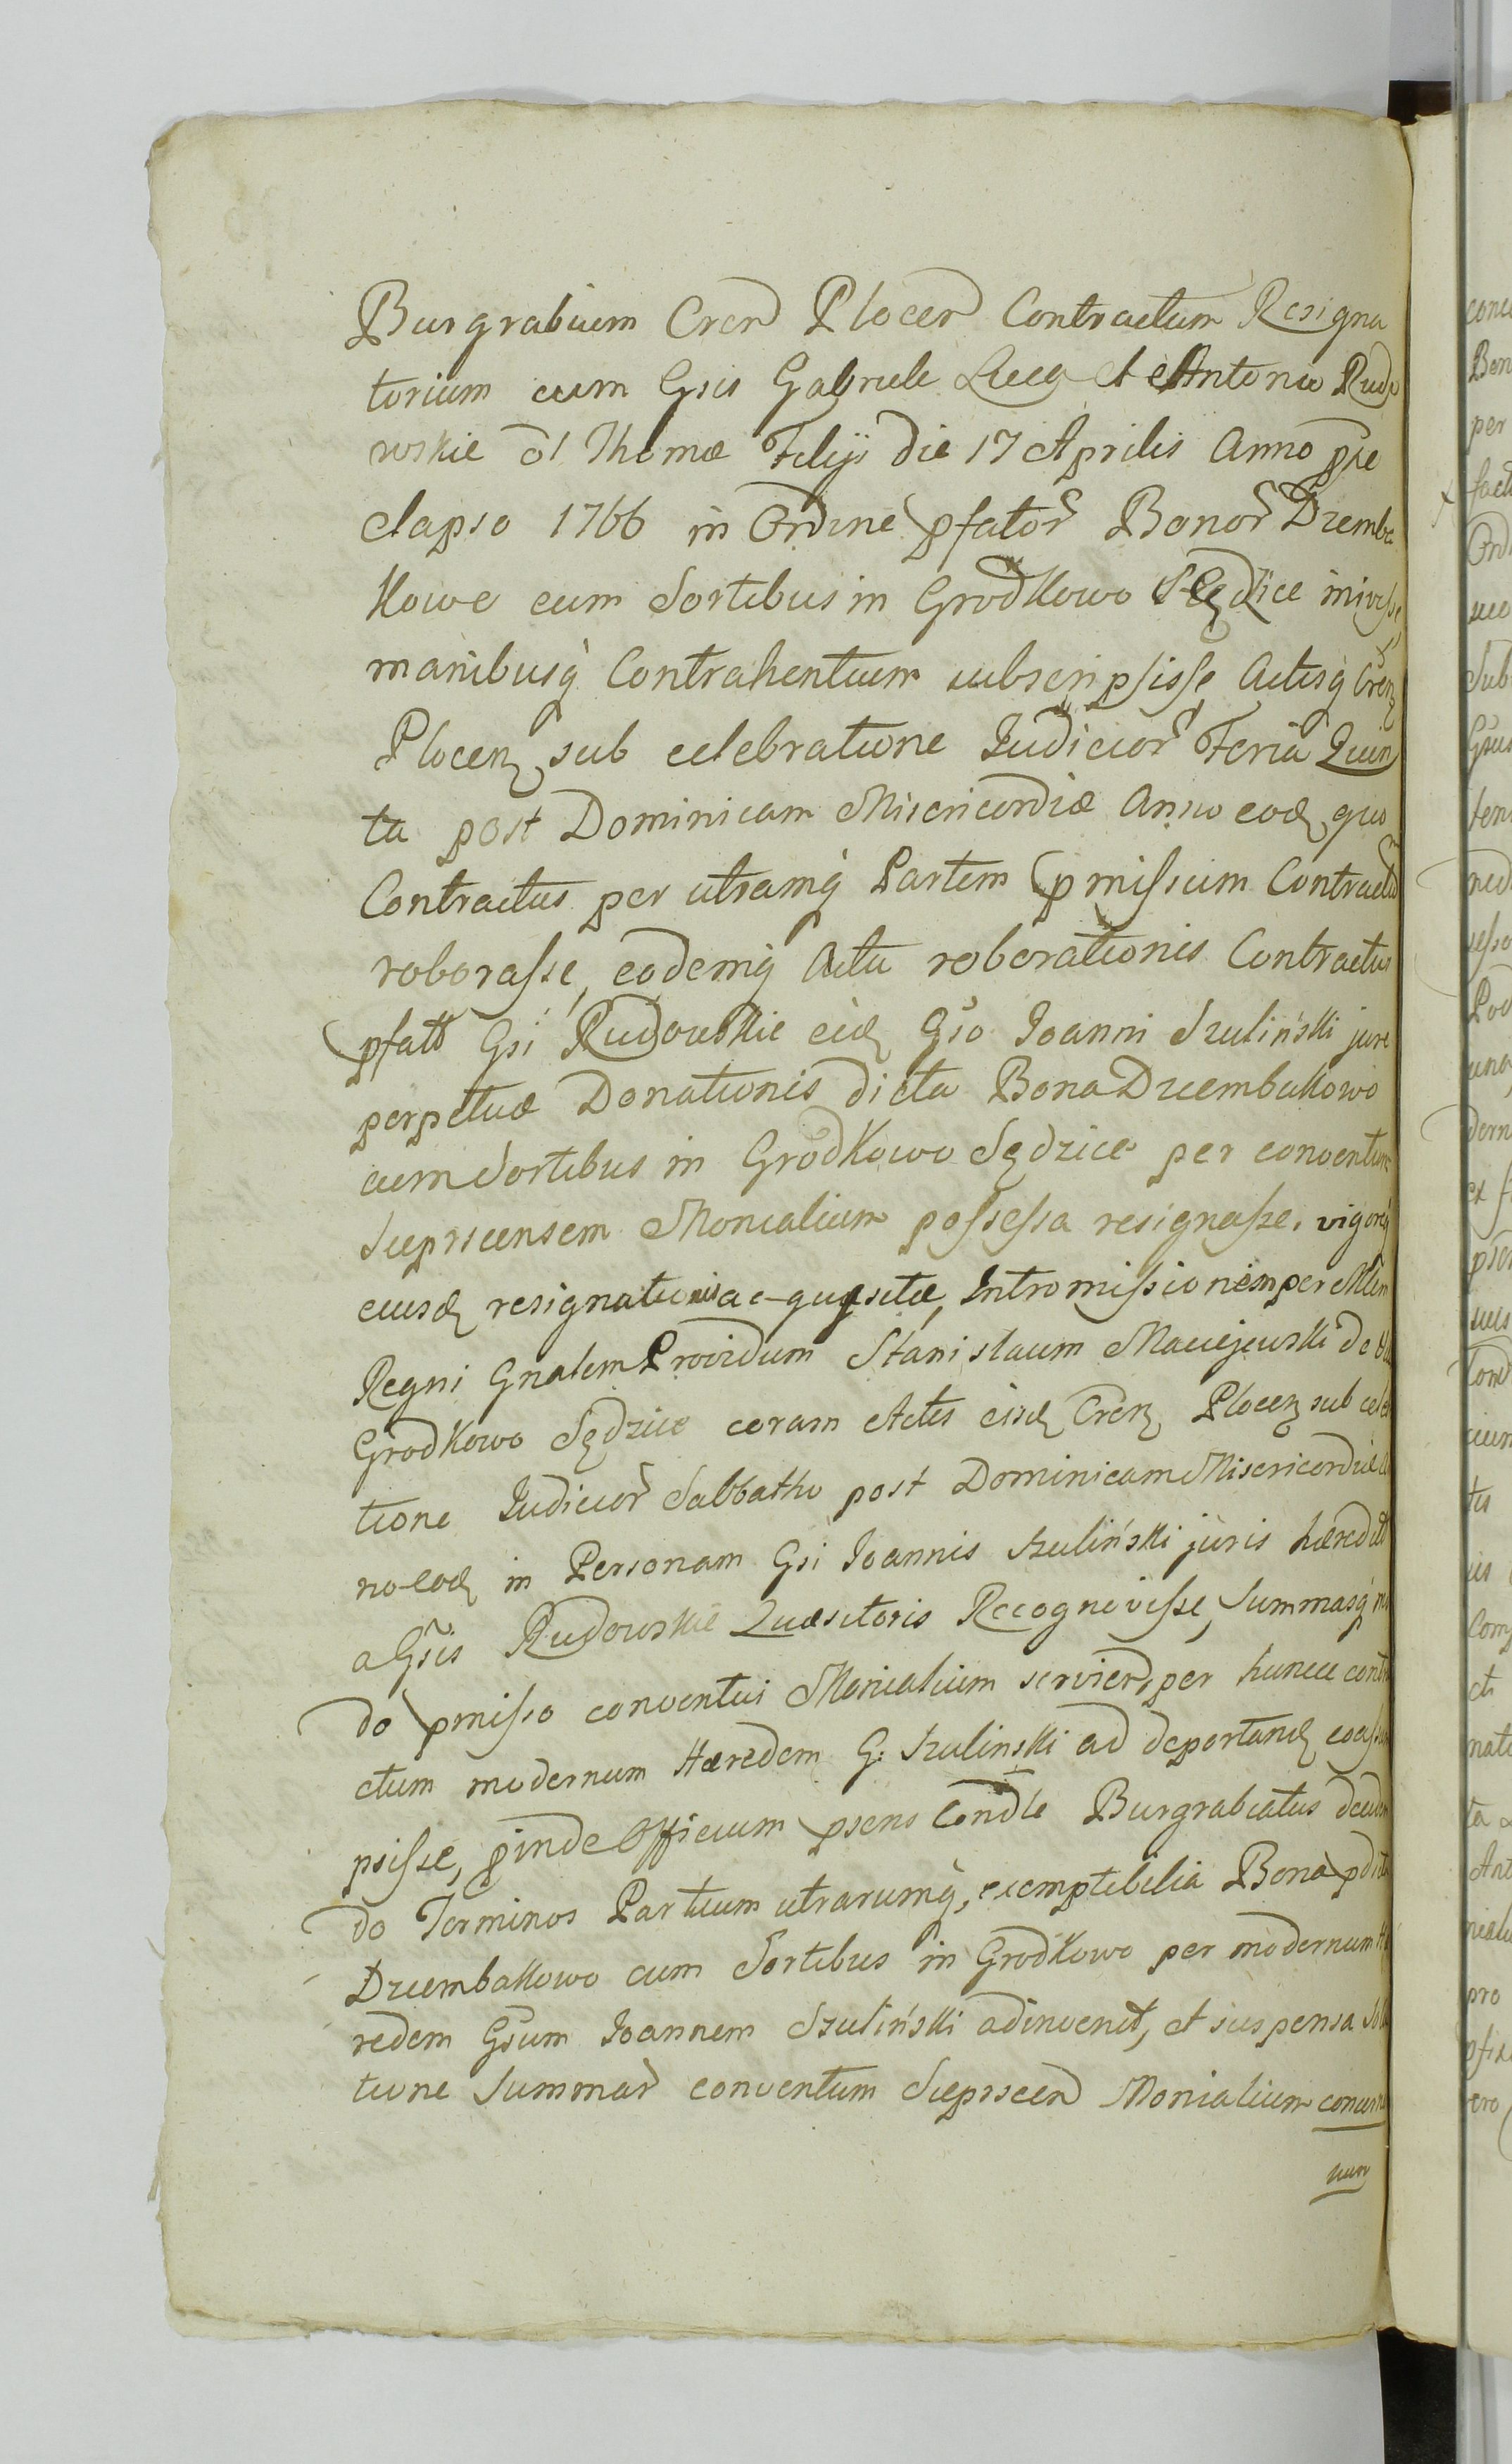 Burgrabium Cren Plocen Contractum Resigna
torium cum Gsis Gabriele Luca et Antonio Rudo
wskie ol Thomæ Filijs die 17 Aprilis Anno præ
elapso 1766 in Ordine pfator Bonor Dziemba
kowo cum Sortibus in Grodkowo Sędzice inivisse,
manibusq Contrahentium subscripsisse, Actisq Cren
Plocen sub celebratione Iudicior Feria Quin
ta post Dominicam Misericordiæ Anno eod, quo
Contractus per utramq Partem pmissum Contractu
roborasse, eodemq Actu roborationis Contractus
pfati Gsi Rudowskie eid Gso Ioanni Szuliński jure
perpetuæ Donationis dicta Bona Dziembakowo
cum Sortibus in Grodkowo Sędzice per conventum
Sieprscensem Monialium possessa resignasse, vigoreq
eiusd resignationis acquisitæ, Intromissionem per Mtm
Regni Gnalem Providum Stanislaum Maciejewski de
Grodkowo Sędzice coram Actis eisd Cren Plocen sub cele
tione Iudicior Sabbatho post Dominicam Misericordiæ
no eod in Personam Gsi Ioannis Szuliński juris hæredit
a Gsis Rudowskie Quæsitoris Recognovisse, Summasq
do pmisso conventui Monialium servien, per hunce contra
ctum modernum Hæredem G: Szulinski ad deportand
psisse, pinde Officium psens Condle Burgrabiatus
do Terminos Partium utrarumq, exemptibilia Bona pdicta
Dziembakowo cum Sortibus in Grodkowo per modernum Hæ
redem Gsum Ioannem Szuliński adinvenit, et suspensa
tione Summar conventum Sieprscen Monialium concernen